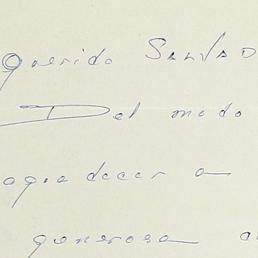 Querido SALVAD
Del modo
agradecer a
generosa